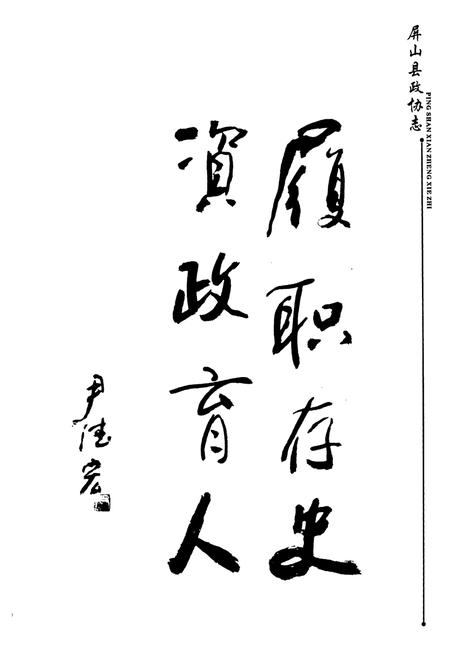 屏山县政协志
PING SHAN XIAN ZHENG XIE ZHI
履职存史
资政育人
尹德宏